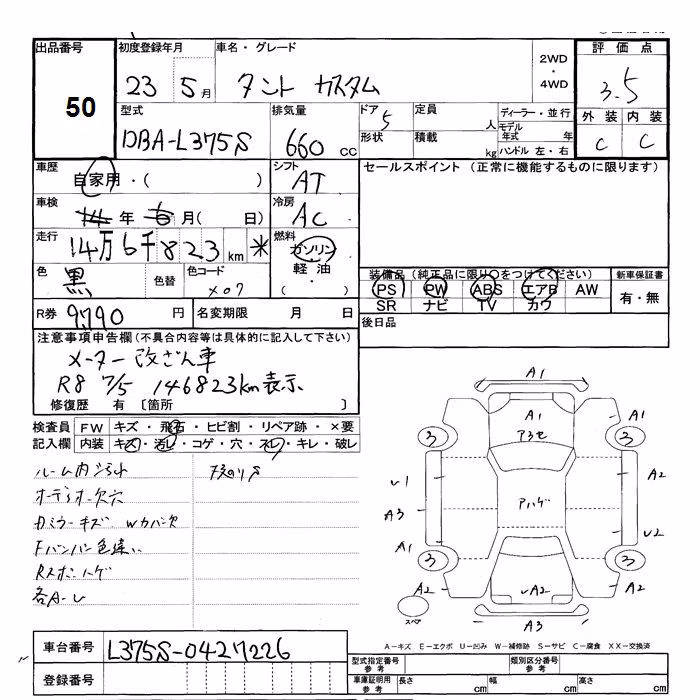 出品番号 初度登録年月 車名・グレード 2WD・4WD 評価点
50 23 5月 タント カスタム 3.5
外装 内装
C C
型式 排気量 ドア 定員 ディーラー・並行
DBA-L375S 660 CC 5 人 モデル年式 年
形状 積載 kg ハンドル 左・右
車歴 自家用・( ) シフト AT セールスポイント (正常に機能するものに限ります)
車検 14年 6月( 日) 冷房 AC
走行 14万6千823km * 燃料 ガソリン 軽油 ( )
色 黒 色替 色コード X07
装備品 (純正品に限り○をつけてください) 新車保証書
PS PW ABS エアB AW 有・無
SR ナビ TV カワ
R券 9,790 円 名変期限 月 日
後日品
注意事項申告欄(不具合内容等は具体的に記入して下さい)
メーター改ざん車
R8 7/5 146823km表示
修復歴 有 〔箇所 〕
検査員 FW キズ・飛石・ヒビ割・リペア跡・×要
記入欄 内装 キズ・汚レ・コゲ・穴・スレ・キレ・破レ
オーディオ欠穴
DミラーキズWカバー欠
Fバンパー色違い
各A-U
A1
A1 A1
3 アラセ 3
U1 A2
A3 アハゲ
A1 U2
3 3
A2 UA2 A2
スペア A3
A-キズ E-エクボ U-凹み W-補修跡 S-サビ C-腐食 XX-交換済
車台番号 L375S-0427226
登録番号
型式指定番号 参考 類別区分番号 参考
車庫証明用 参考 長さ cm 幅 cm 高さ cm